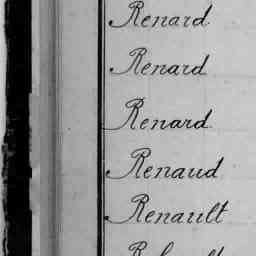 Renard
Renard
Renard
Renaud
Renault